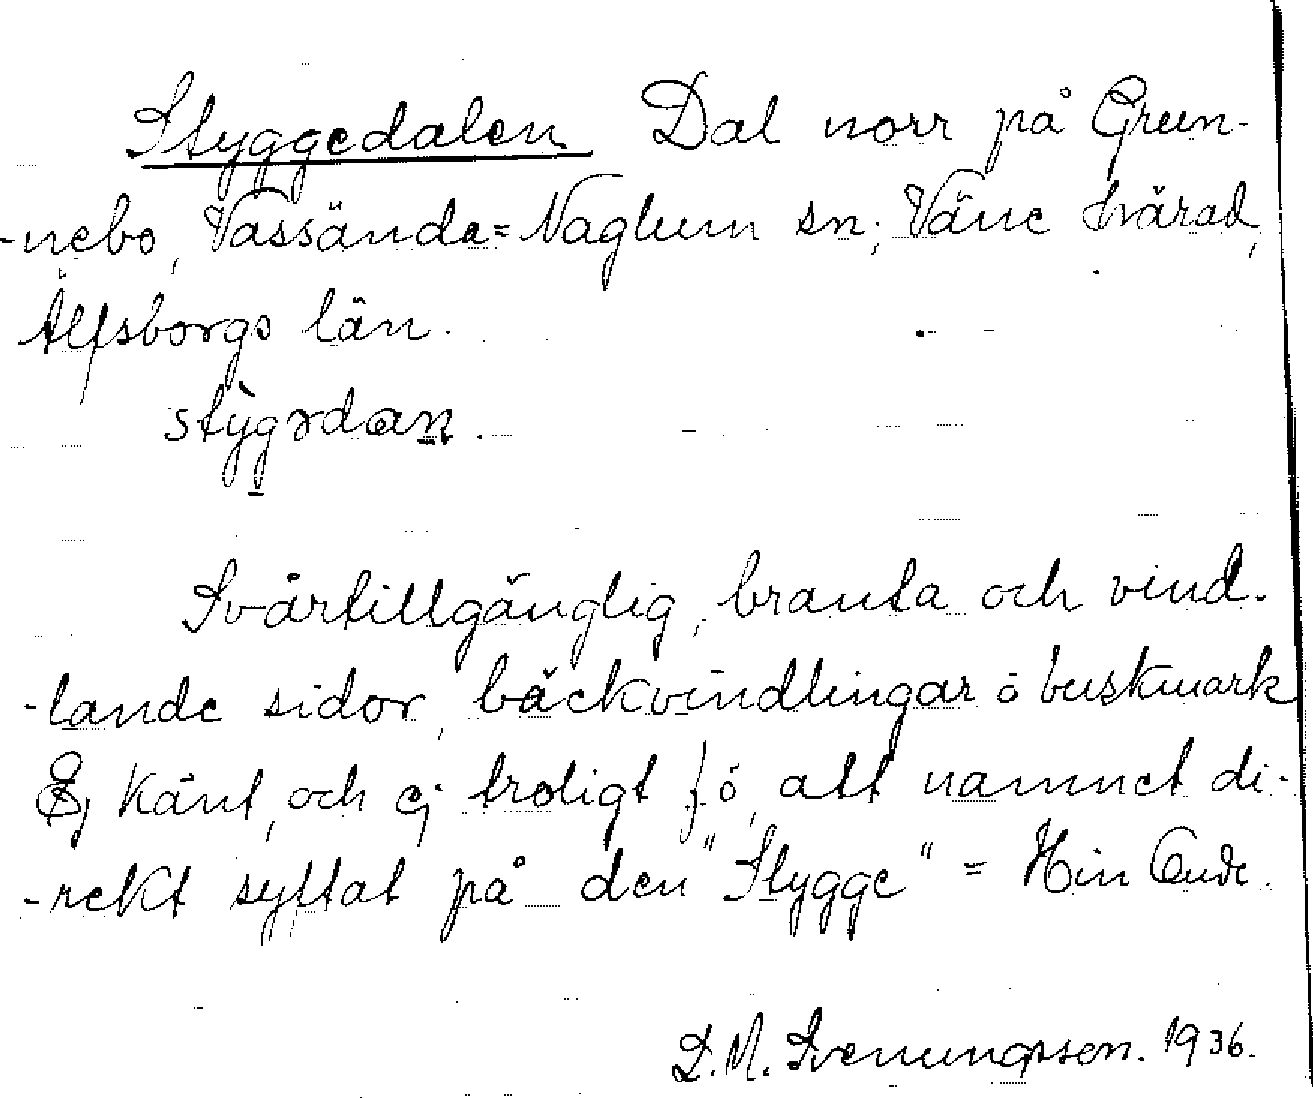 Styggedalen Dal norr på Grun-
-nebo, Vassända=Naglum sn; Väne härad,
Älfsborgs län.
stỳgədan.
Svårtillgänglig, branta och vind-
-lande sidor, bäckvindlingar o buskmark
Ej känt, och ej troligt f.ö, att namnet di-
-rekt syftat på den "Stygge" = Hin Onde.
D.M. Svenungsson. 1936.